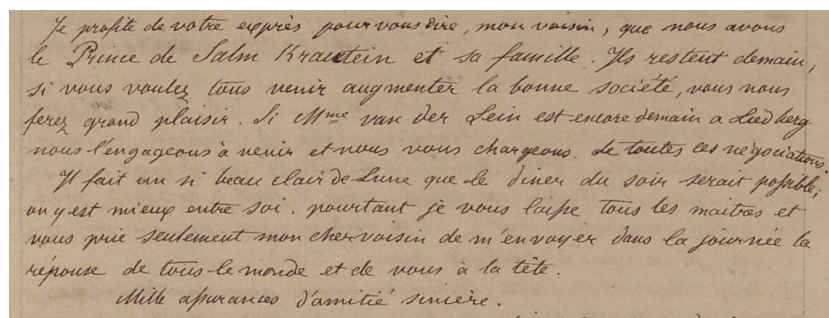 Je profite de votre exprès pour vous dire, mon voisin, que nous avons
le Prince de Salm Krautein et sa famille. Ils restent demain,
si vous voulez tous venir augmenter la bonne société, vous nous
ferez grand plaisir. Si Mme van der Lein est encore demain a Liedberg
nous l'engageons à venir et nous vous chargeons de toutes ces négociations.
Il fait un si beau clair de Lune que le diner du soir serait possible;
on y est mieux entre soi, pourtant je vous laisse tous les maitres et
vous prie seulement mon cher voisin de m'envoyer dans la journée la
réponse de tous le monde et de vous à la tête.
Mille assurances d'amitié sincère.